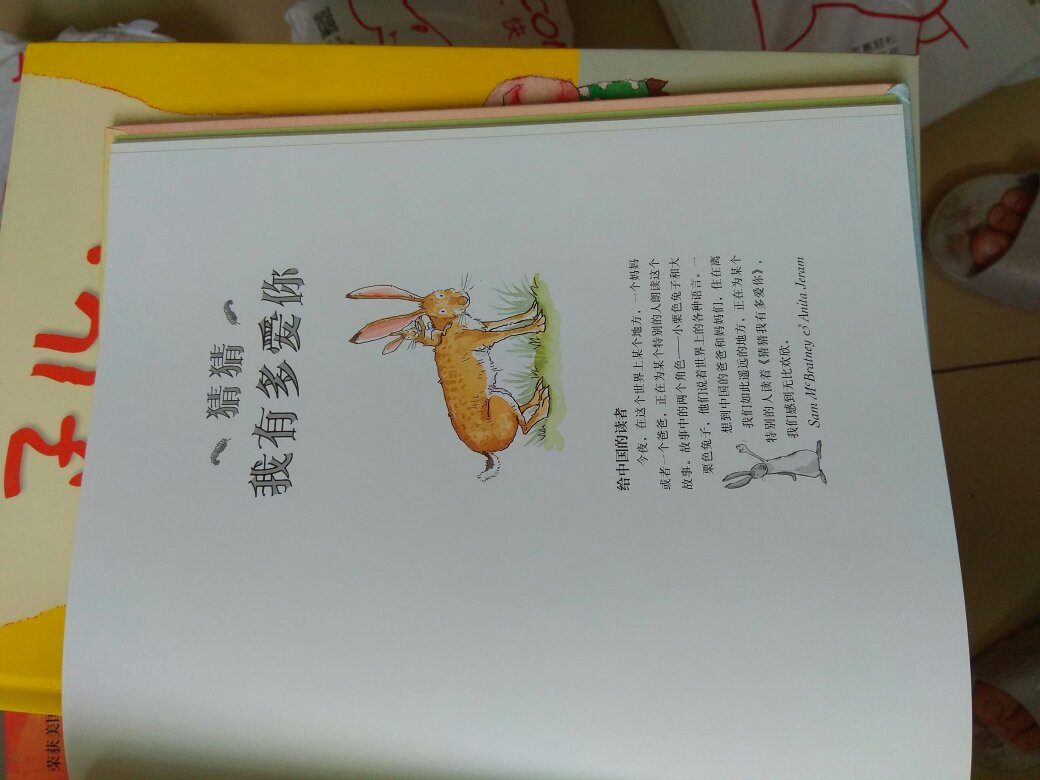 猜猜
我有多爱你
给中国的读者
今夜，在这个世界上某个地方，一个妈妈
或者一个爸爸，正在为某个特别的人朗读这个
故事。故事中的两个角色——小栗色兔子和大
栗色兔子，他们说着世界上的各种语言。一
想到中国的爸爸和妈妈们，住在离
我们如此遥远的地方，正在为某个
特别的人读着《猜猜我有多爱你》，
我们感到无比欢欣。
Sam McBratney & Anita Jeram
荣获美国